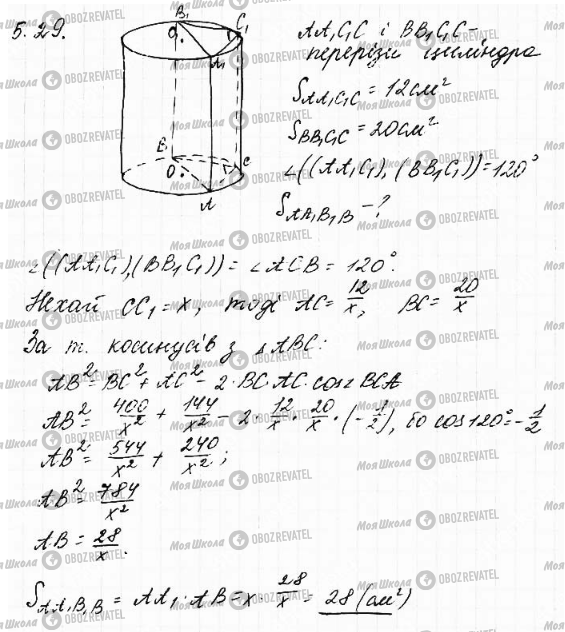 5.29.
B₁
C₁
O₁
A₁
B
O
C
A
AA₁C₁C і BB₁C₁C –
перерізи циліндра
S_{AA₁C₁C} = 12 см²
S_{BB₁C₁C} = 20 см²
∠((AA₁C₁), (BB₁C₁)) = 120°
S_{AA₁B₁B} – ?
∠((AA₁C₁), (BB₁C₁)) = ∠ACB = 120°.
Нехай CC₁ = x, тоді AC = 12/x, BC = 20/x
За т. косинусів з △ABC:
AB² = BC² + AC² – 2·BC·AC·cos∠BCA
AB² = 400/x² + 144/x² – 2·12/x·20/x·(–1/2), бо cos120° = –1/2
AB² = 544/x² + 240/x²;
AB² = 784/x²
AB = 28/x.
S_{AA₁B₁B} = AA₁·AB = x·28/x = 28 (см²)
Моя Школа OBOZREVATEL